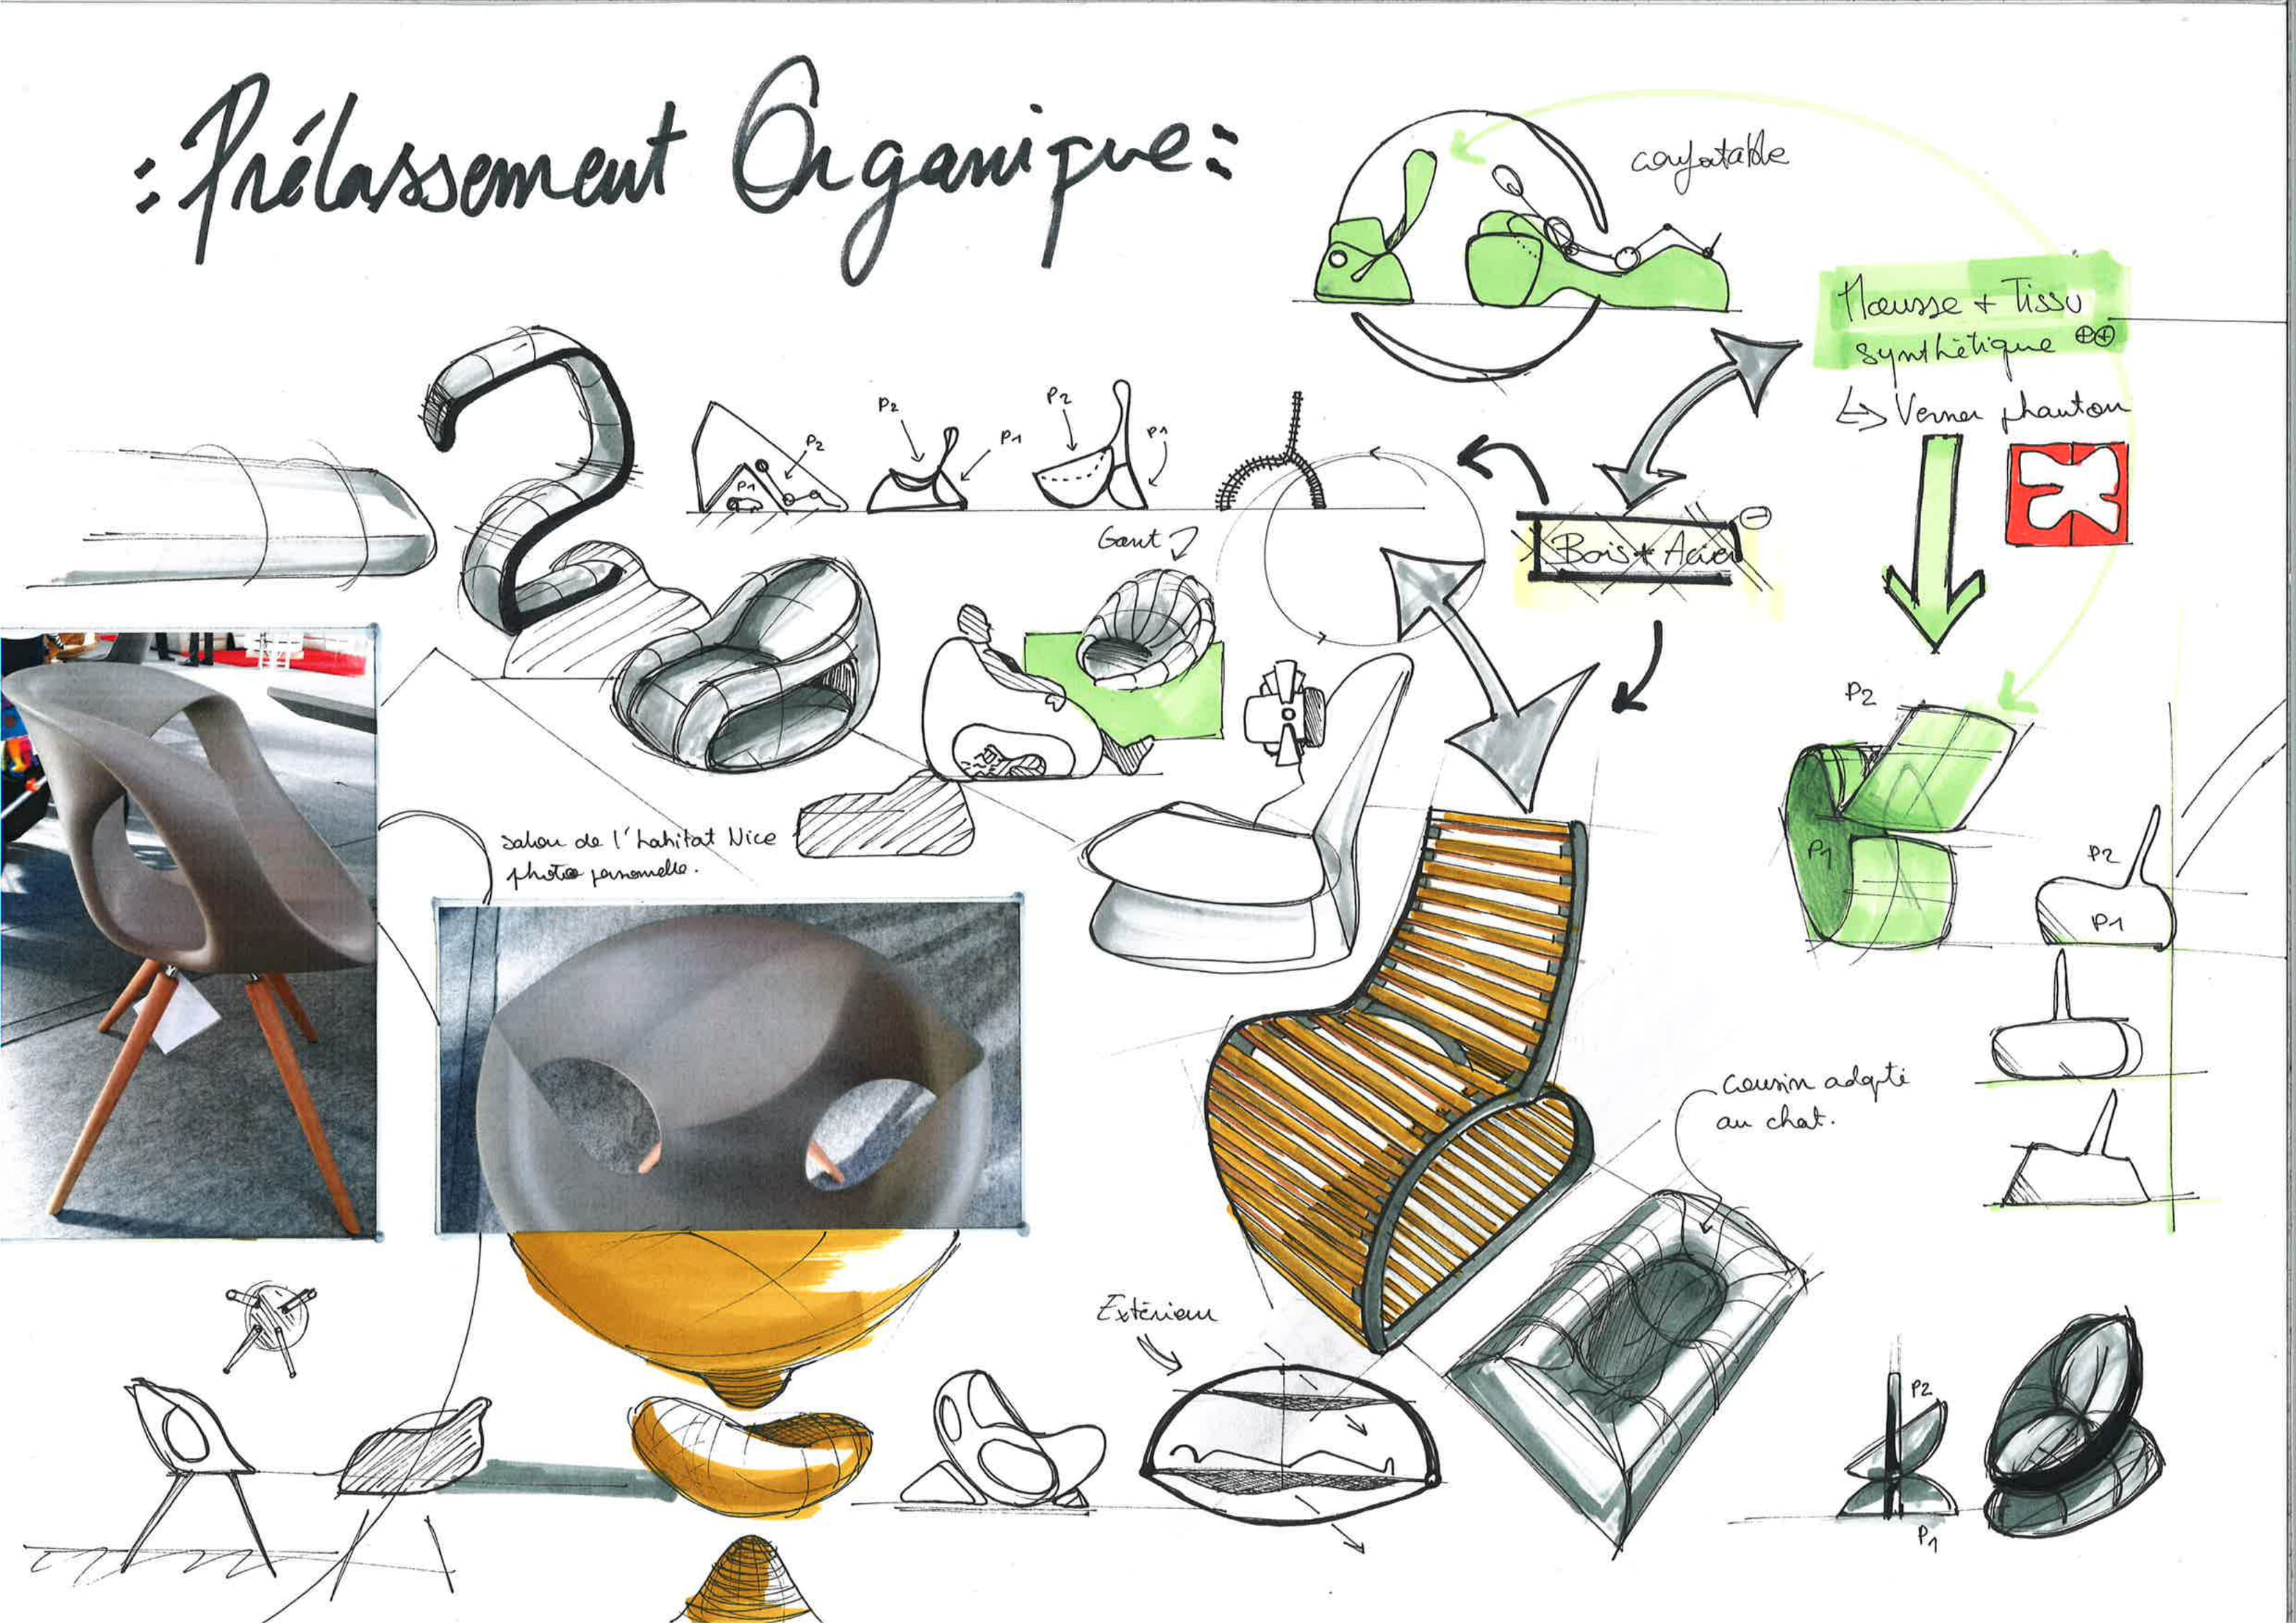 : Prélassement Organique :
confortable
Mousse + Tissu
synthétique ⊕⊕
↳ Verner phanton
P2
P2
P1
P2
P1
P2
P1
Gant
Bois + Acier ⊖
salon de l'habitat Nice
photo personnelle.
P2
P1
P2
P1
cousin adapté
au chat.
Extérieur
P2
P1